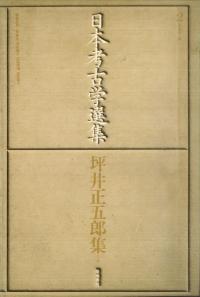 2
日本考古学選集
坪井正五郎集